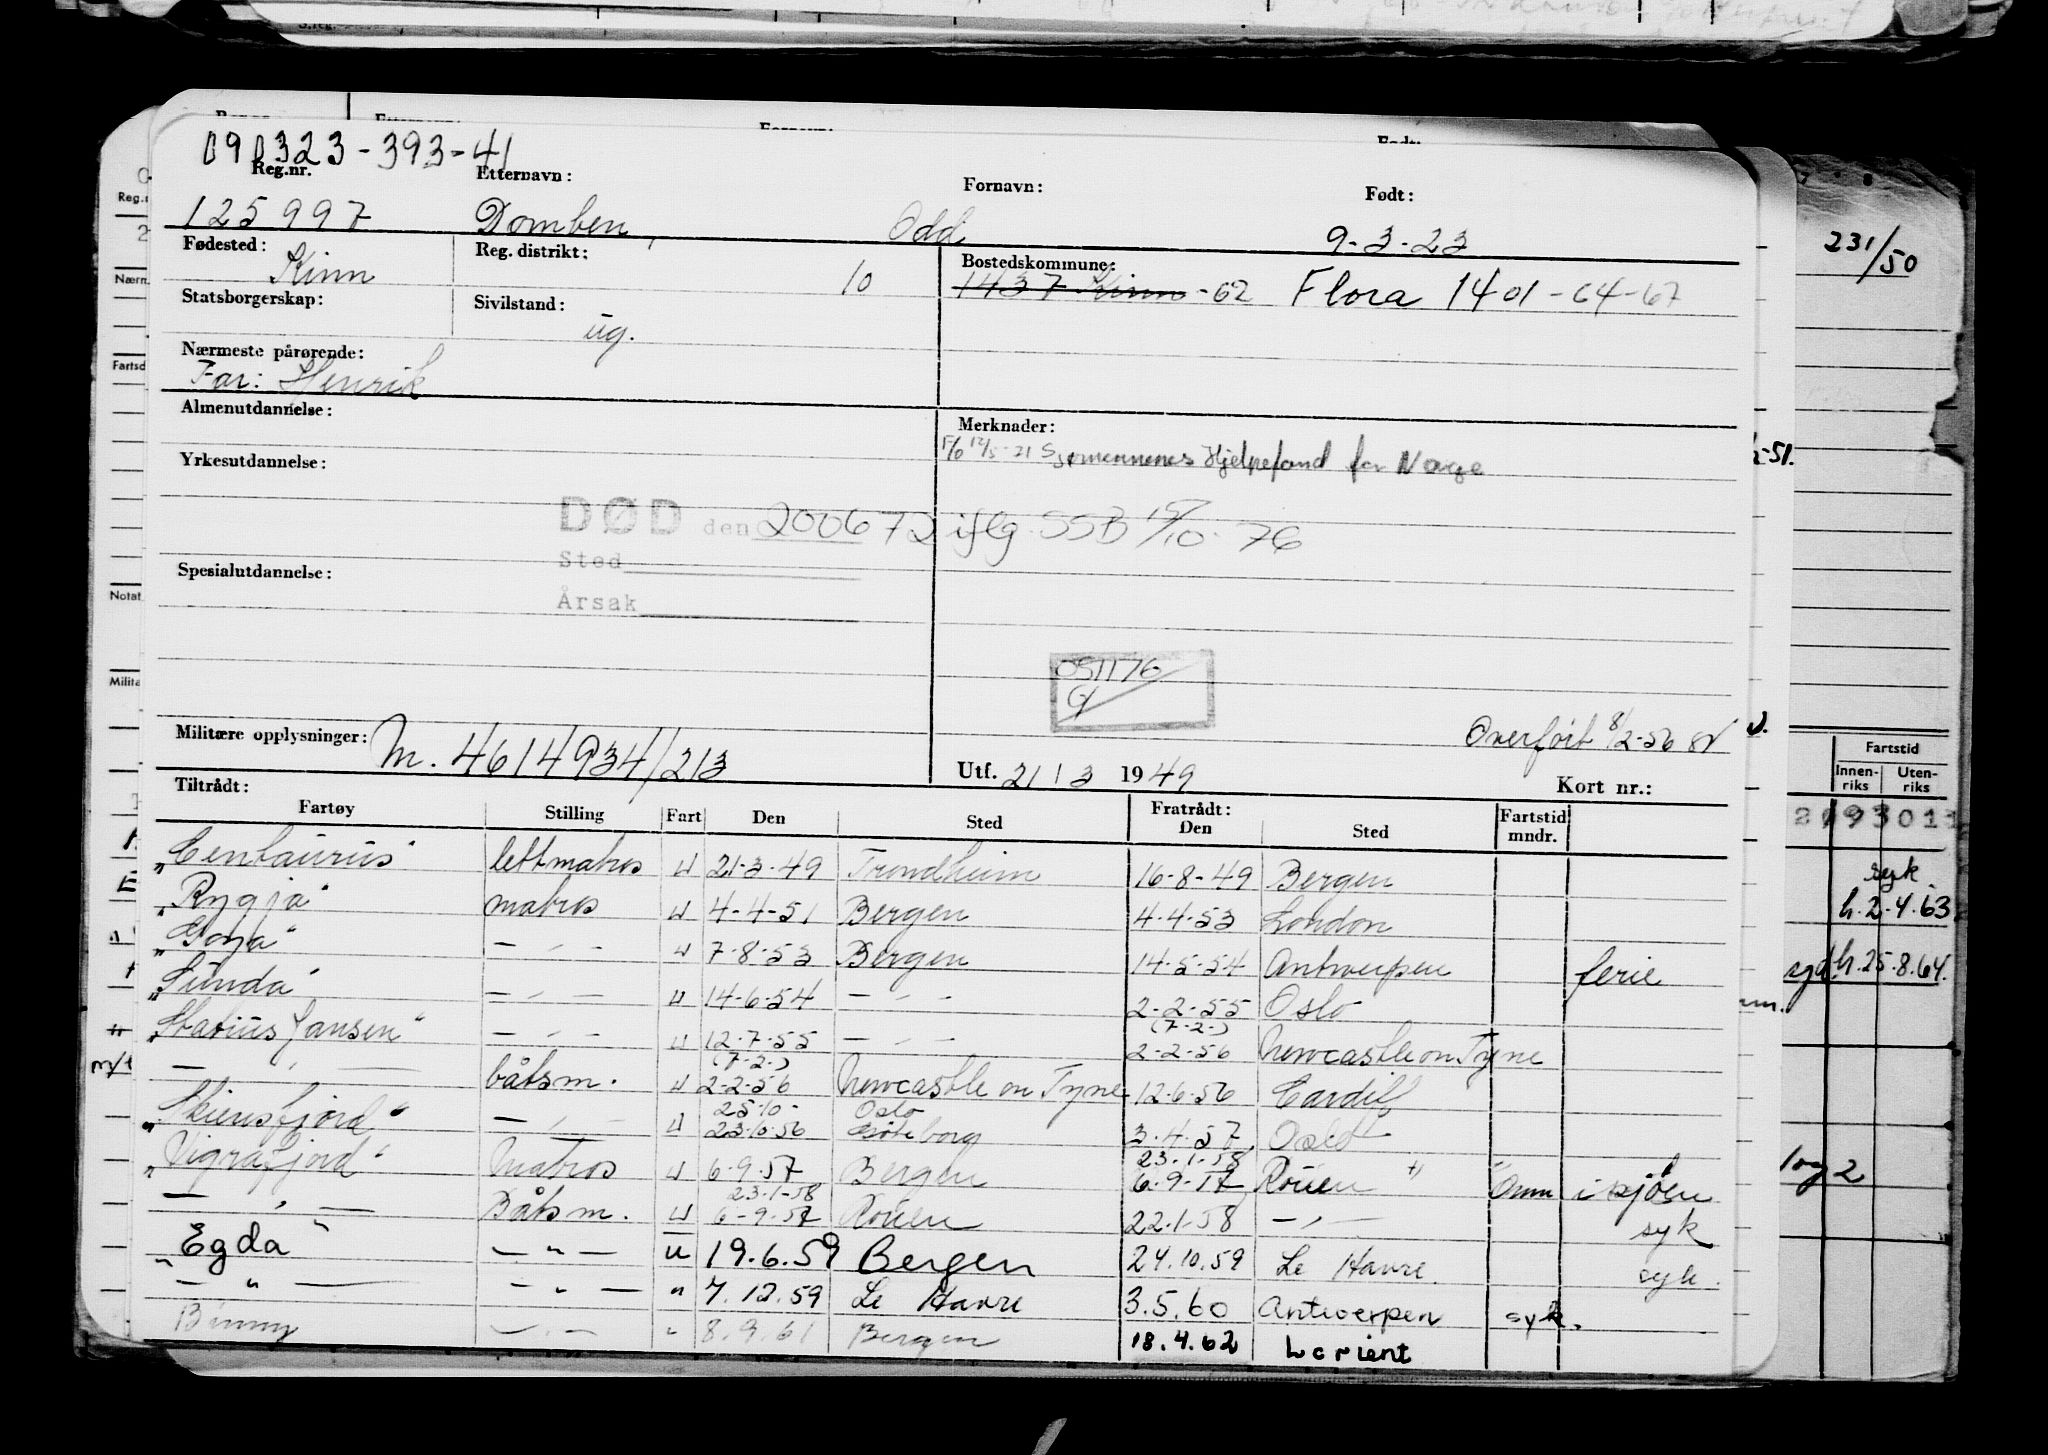 090323-393-41
Reg.nr. Etternavn: Fornavn: Født:
125997 Domben, Odd 9-3-23
Fødested: Kinn Reg. distrikt: 10 Bostedskommune: 1437 Kinn -62 Flora 1401-64-67
Statsborgerskap: Sivilstand: ug.
Nærmeste pårørende:
Far: Henrik
Almenutdannelse: Merknader:
Sjømennenes Hjelpefond for Norge
Yrkesutdannelse:
DØD den 200672 iflg. SSB 15/10-76
Sted
Spesialutdannelse:
Årsak
051176
Militære opplysninger: M. 4614934/213 Overført 8/2-56
Utf. 21/3 1949 Kort nr.:
Tiltrådt: Fratrådt:
Fartøy Stilling Fart Den Sted Den Sted Fartstid mndr.
"Centaurus" lettmatros u 21-3-49 Trondheim 16-8-49 Bergen
"Rygja" matros u 4-4-51 Bergen 4-4-53 London
"Goya" — " — u 7-8-53 Bergen 14-5-54 Antwerpen ferie
"Sunda" — " — u 14-6-54 — " — 2-2-55 Oslo
(7-2-)
"Statius Jansen" — " — u 12-7-55 — " — 2-2-56 Newcastle on Tyne
(7-2-)
— " — båtsm. u 2-2-56 Newcastle on Tyne 12-6-56 Cardiff
25-10- Oslo
"Skiensfjord" — " — u 23-10-56 Göteborg 3-4-57 Oslo
23-1-58
"Vigrafjord" Matros u 6-9-57 Bergen 6-9-57 Rouen " i sjøen
23-1-58
— " — Båtsm. u 6-9-57 Rouen 22-1-58 — " — syk
"Egda" — " — u 19.6.59 Bergen 24.10.59 Le Havre. syk.
— " — — " — " 7.12.59 Le Havre 3.5.60 Antwerpen syk.
Binny — " — " 8.9.61 Bergen 18.4.62 Lorient
231/50
Fartstid
Innenriks Utenriks
syk
h.2.4.63
h.25.8.64.
log 2